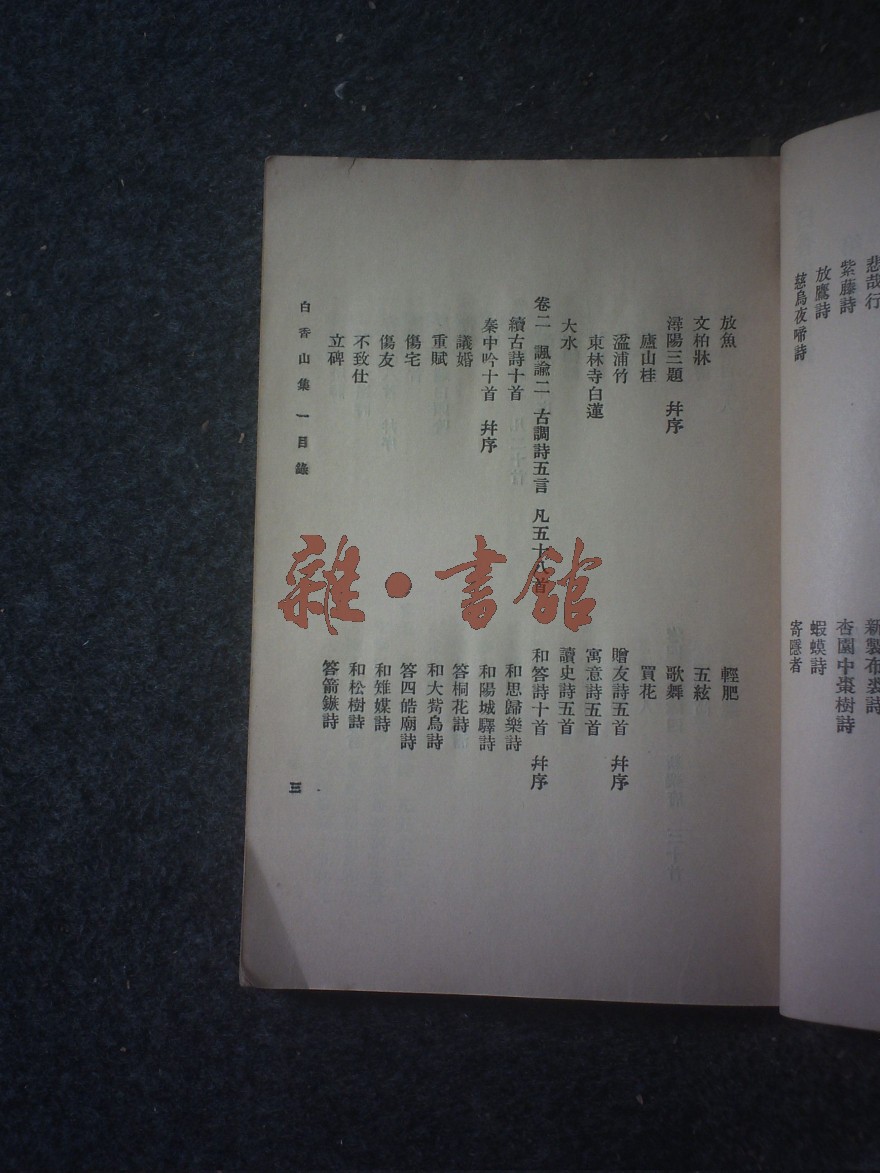 悲哉行
紫藤詩
放鷹詩
慈烏夜啼詩
新製布裘詩
杏園中棗樹詩
蝦蟆詩
寄隱者
放魚
文柏牀
潯陽三題　幷序
廬山桂
湓浦竹
東林寺白蓮
大水
卷二　諷諭二　古調詩五言　凡五十八首
續古詩十首
秦中吟十首　幷序
議婚
重賦
傷宅
傷友
不致仕
立碑
輕肥
五絃
歌舞
買花
贈友詩五首　幷序
寓意詩五首
讀史詩五首
和答詩十首　幷序
和思歸樂詩
和陽城驛詩
答桐花詩
和大觜烏詩
答四皓廟詩
和雉媒詩
和松樹詩
答箭鏃詩
白香山集　一　目錄
三
雜·書館